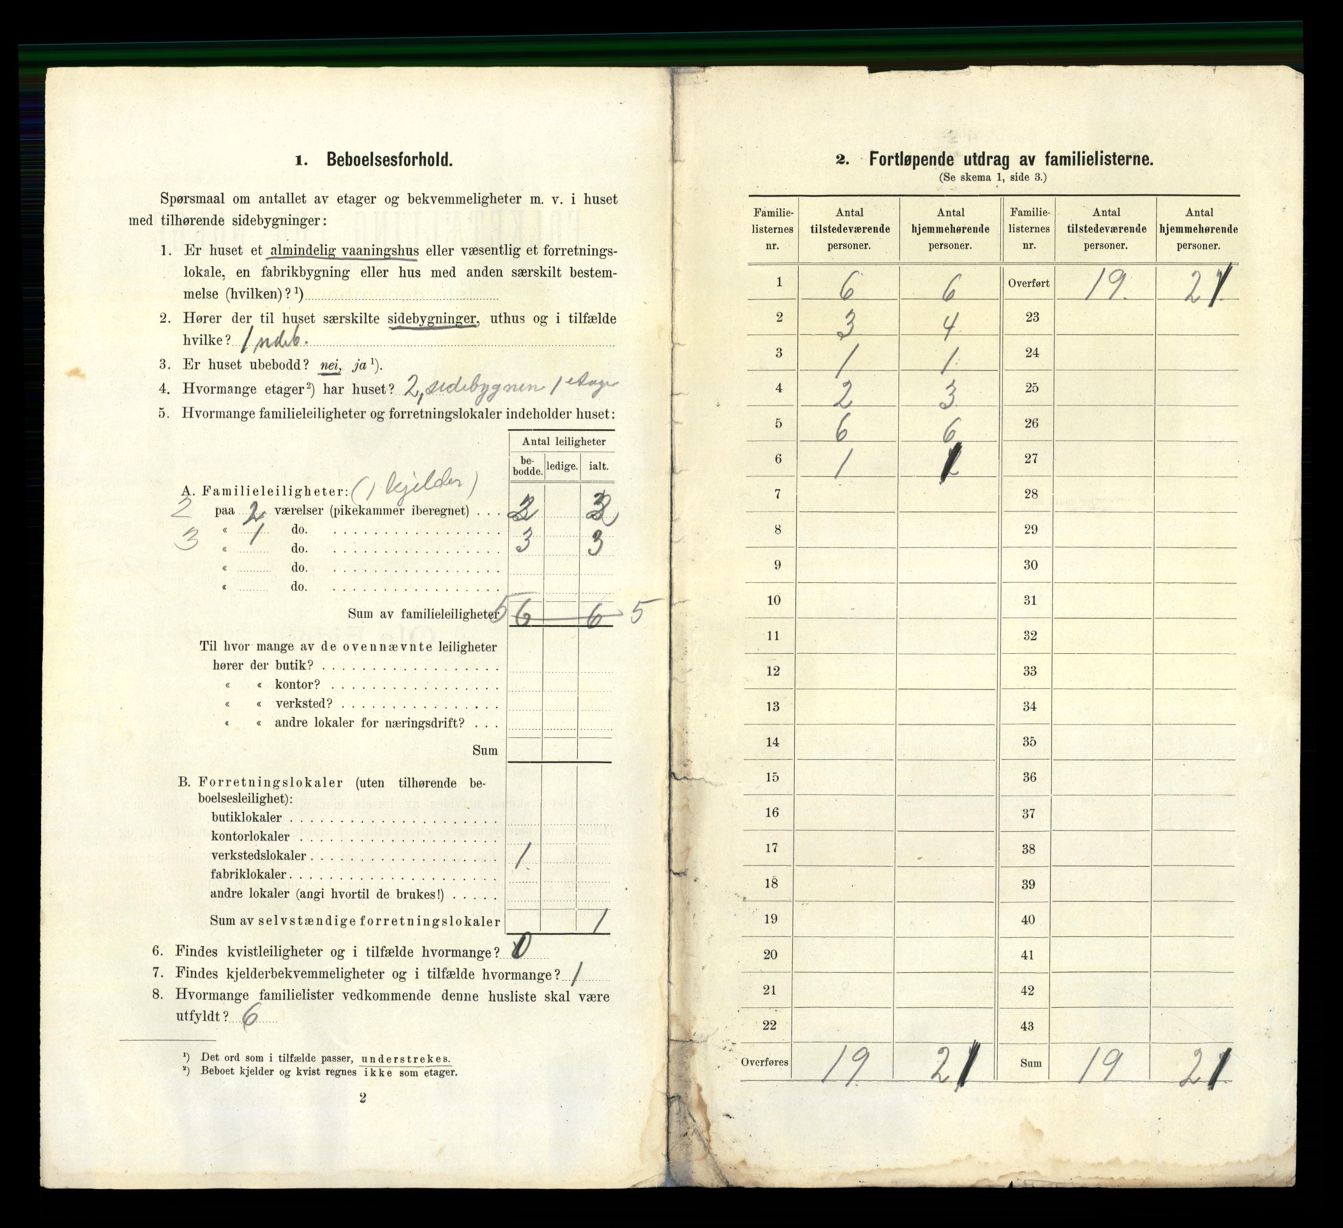 1. Beboelsesforhold.
Spørsmaal om antallet av etager og bekvemmeligheter m. v. i huset
med tilhørende sidebygninger:
1. Er huset et almindelig vaaningshus eller væsentlig et forretnings-
lokale, en fabrikbygning eller hus med anden særskilt bestem-
melse (hvilken)? ¹)
2. Hører der til huset særskilte sidebygninger, uthus og i tilfælde
hvilke? 1 sideb.
3. Er huset ubebodd? nei, ja ¹).
4. Hvormange etager ²) har huset? 2, sidebygnen 1 etage
5. Hvormange familieleiligheter og forretningslokaler indeholder huset:
Antal leiligheter
be-bodde. ledige. ialt.
A. Familieleiligheter: (1 kjelder)
2 paa 2 værelser (pikekammer iberegnet) . . . 2 2
3 « 1 do. . . . 3 3
« do.
« do.
« do.
Sum av familieleiligheter 5 6 6 5
Til hvor mange av de ovennævnte leiligheter
hører der butik?
« « kontor?
« « verksted?
« « andre lokaler for næringsdrift?
Sum
B. Forretningslokaler (uten tilhørende be-
boelsesleilighet):
butiklokaler
kontorlokaler
verkstedslokaler 1
fabriklokaler
andre lokaler (angi hvortil de brukes!)
Sum av selvstændige forretningslokaler 1
6. Findes kvistleiligheter og i tilfælde hvormange? 0
7. Findes kjelderbekvemmeligheter og i tilfælde hvormange? 1
8. Hvormange familielister vedkommende denne husliste skal være
utfyldt? 6
¹) Det ord som i tilfælde passer, understrekes.
²) Beboet kjelder og kvist regnes ikke som etager.
2
2. Fortløpende utdrag av familielisterne.
(Se skema 1, side 3.)
Familie-listernes nr. Antal tilstedeværende personer. Antal hjemmehørende personer. Familie-listernes nr. Antal tilstedeværende personer. Antal hjemmehørende personer.
1 6 6 Overført 19. 21
2 3 4 23
3 1 1 24
4 2 3 25
5 6 6 26
6 1 1 27
7 28
8 29
9 30
10 31
11 32
12 33
13 34
14 35
15 36
16 37
17 38
18 39
19 40
20 41
21 42
22 43
Overføres 19. 21 Sum 19 21